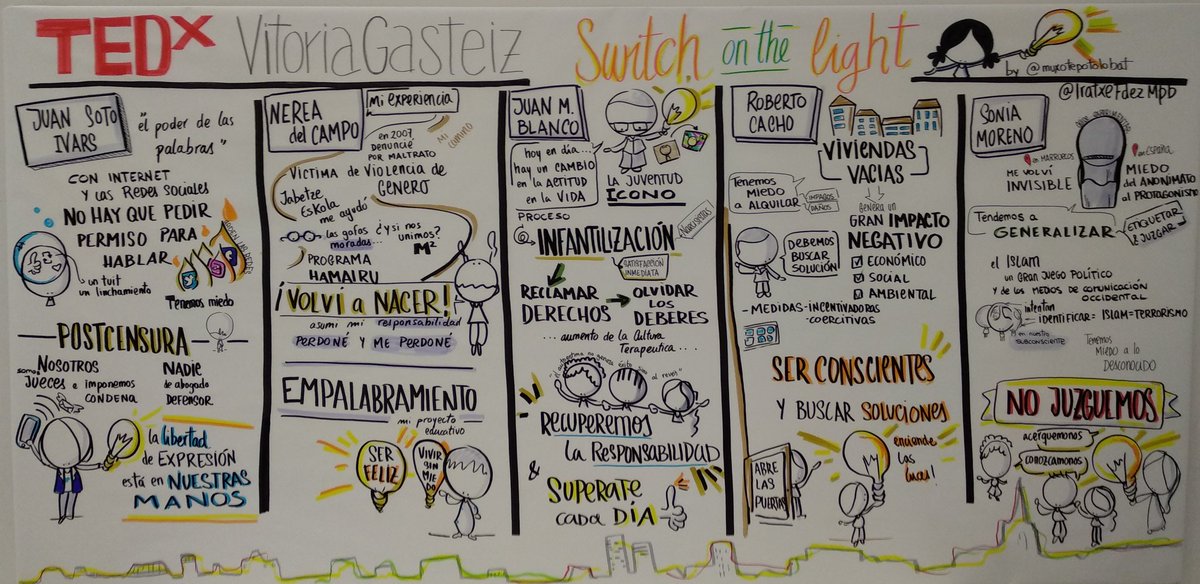 TEDx VitoriaGasteiz Switch on the light
by @muxotepotolobat
@IratxeFdezMpb
JUAN SOTO
IVARS
"el poder de las
palabras"
CON INTERNET
y las Redes sociales
NO HAY QUE PEDIR
PERMISO PARA
HABLAR
un tuit
un linchamiento
Tenemos miedo
POSTCENSURA
somos NOSOTROS
JUECES e imponemos
CONDENA
NADIE
de abogado
defensor
la libertad
de EXPRESIÓN
está en NUESTRAS
MANOS
NEREA
del CAMPO
Mi experiencia
MI CAMINO
en 2007
DENUNCIÉ
POR MALTRATO
VICTIMA de VIOLENCIA de
GENERO
Jabetze
EsKola
me ayudó
las gafas
moradas...
¿y si nos
unimos?
M²
PROGRAMA
HAMAIRU
¡VOLVÍ a NACER!
asumí mi responsabilidad
PERDONÉ Y ME PERDONÉ
EMPALABRAMIENTO
mi proyecto
educativo
SER
FELIZ
VIVIR
SIN
MIEDO
JUAN M.
BLANCO
hoy en día...
hay un CAMBIO
en la ACTITUD
en la VIDA
LA JUVENTUD
ICONO
PROCESO
INFANTILIZACIÓN
SATISFACCIÓN
INMEDIATA
RECLAMAR
DERECHOS
OLVIDAR
LOS
DEBERES
... aumento de la Cultura
Terapeutica...
RECUPEREMOS
la RESPONSABILIDAD
&
SUPERATE
cada DÍA
ROBERTO
CACHO
VIVIENDAS
VACIAS
Tenemos
MIEDO
a ALQUILAR
IMPAGOS
DAÑOS
GENERA UN
GRAN IMPACTO
NEGATIVO
ECONÓMICO
SOCIAL
AMBIENTAL
DEBEMOS
BUSCAR
SOLUCIÓN!
- MEDIDAS - INCENTIVADORAS
- COERCITIVAS
SER CONSCIENTES
Y BUSCAR SOLUCIONES
enciende
las
luces!
ABRE
LAS
PUERTAS
SONIA
MORENO
en MARRUECOS
ME VOLVÍ
INVISIBLE
en España
MIEDO
del ANONIMATO
al PROTAGONISMO
Tendemos a
GENERALIZAR
ETIQUETAR
& JUZGAR
el ISlam
un GRAN JUEGO POLÍTICO
y de los MEDIOS de COMUNICACIÓN
OCCIDENTAL
intentan
IDENTIFICAR = ISLAM = TERRORISMO
en nuestro
SUBCONSCIENTE
Tenemos
MIEDO a lo
DESCONOCIDO
NO JUZGUEMOS
acerquémonos
conozcámonos